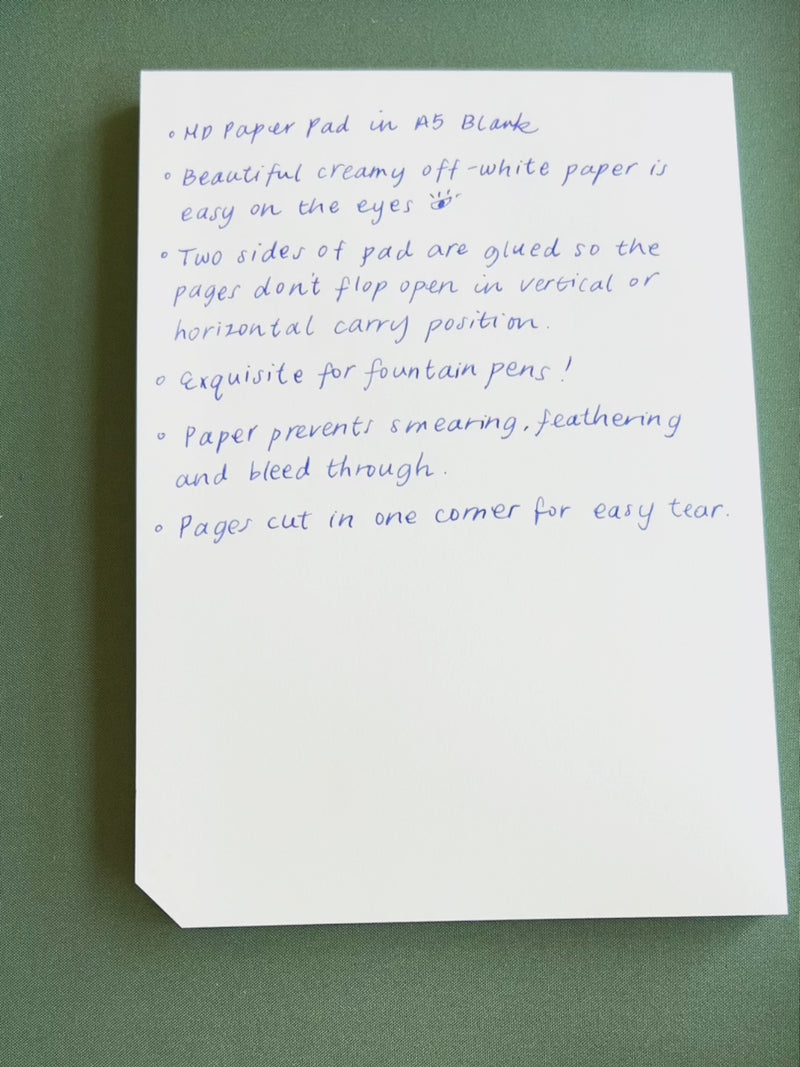 ◦ MD Paper Pad in A5 Blank
◦ Beautiful creamy off-white paper is
easy on the eyes
◦ Two sides of pad are glued so the
pages don't flop open in vertical or
horizontal carry position.
◦ Exquisite for fountain pens!
◦ Paper prevents smearing, feathering
and bleed through.
◦ Pages cut in one corner for easy tear.